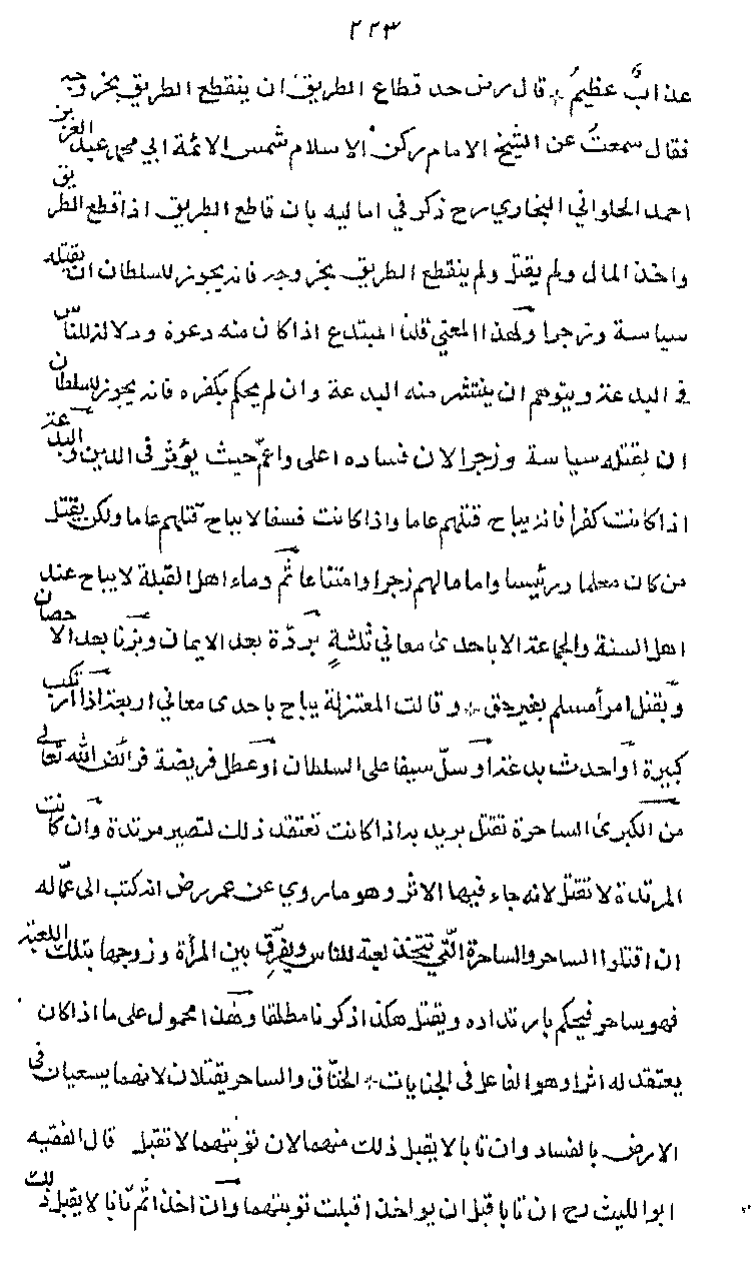 ٢٢٣
عذابٌ عظيمٌ قال رض حد قطاع الطريق ان ينقطع الطريق بخروجه
فقال سمعت عن الشيخ الامام ركن الاسلام شمس الائمة ابي محمد عبد العزيز
احمد الحلواني البخاري رح ذكر في اماليه بان قاطع الطريق اذا قطع الطريق
واخذ المال ولم يقتل ولم ينقطع الطريق بخروجه فانه يجوز للسلطان ان يقتله
سياسة وزجرا ولهذا المعني قلنا المبتدع اذا كان منه دعوة ودلالة للناس
في البدعة ويتوهم ان ينتشر منه البدعة وان لم يحكم بكفره فانه يجوز للسلطان
ان يقتله سياسة وزجرا لان فساده اعلى واعمّ حيث يؤثر في الدين والبدعة
اذا كانت كفرا فانه يباح قتلهم عاما واذا كانت فسقا لا يباح قتلهم عاما ولكن يقتل
من كان معلما ورئيسا واماما لهم زجرا وامتناعا ثم دماء اهل القبلة لا يباح عند
اهل السنة والجماعة الا باحدى معاني ثلثةٍ بردّة بعد الايمان وبزنا بعد الاحصان
وبقتل امرأ مسلم بغير حق وقالت المعتزلة يباح باحدى معاني اربعة اذا ارتكب
كبيرة او احدث بدعة او سلّ سيفا على السلطان او عطل فريضة فرائض الله تعالى
من الكبرى الساحرة تقتل يريد به اذا كانت تعتقد ذلك لتصير مرتدة وان كانت
المرتدة لا تقتل لانه جاء فيها الاثر وهو ما روي عن عمر رض انه كتب الى عمّاله
ان اقتلوا الساحر والساحرة التي تتخذ لعبة للناس ويفرّق بين المرأة وزوجها بتلك اللعبة
فهو ساحر فيحكم بارتداده ويقتل هكذا ذكرنا مطلقا وهذا محمول على ما اذا كان
يعتقد له اثرا وهو الفاعل في الجنايات الخنّاق والساحر يقتلان لانهما يسعيان في
الارض بالفساد وان تابا لا يقبل ذلك منهما لان توبتهما لا تقبل قال الفقيه
ابو الليث رح ان تابا قبل ان يواخذا قبلت توبتهما وان اخذا ثم تابا لا يقبل ذلك